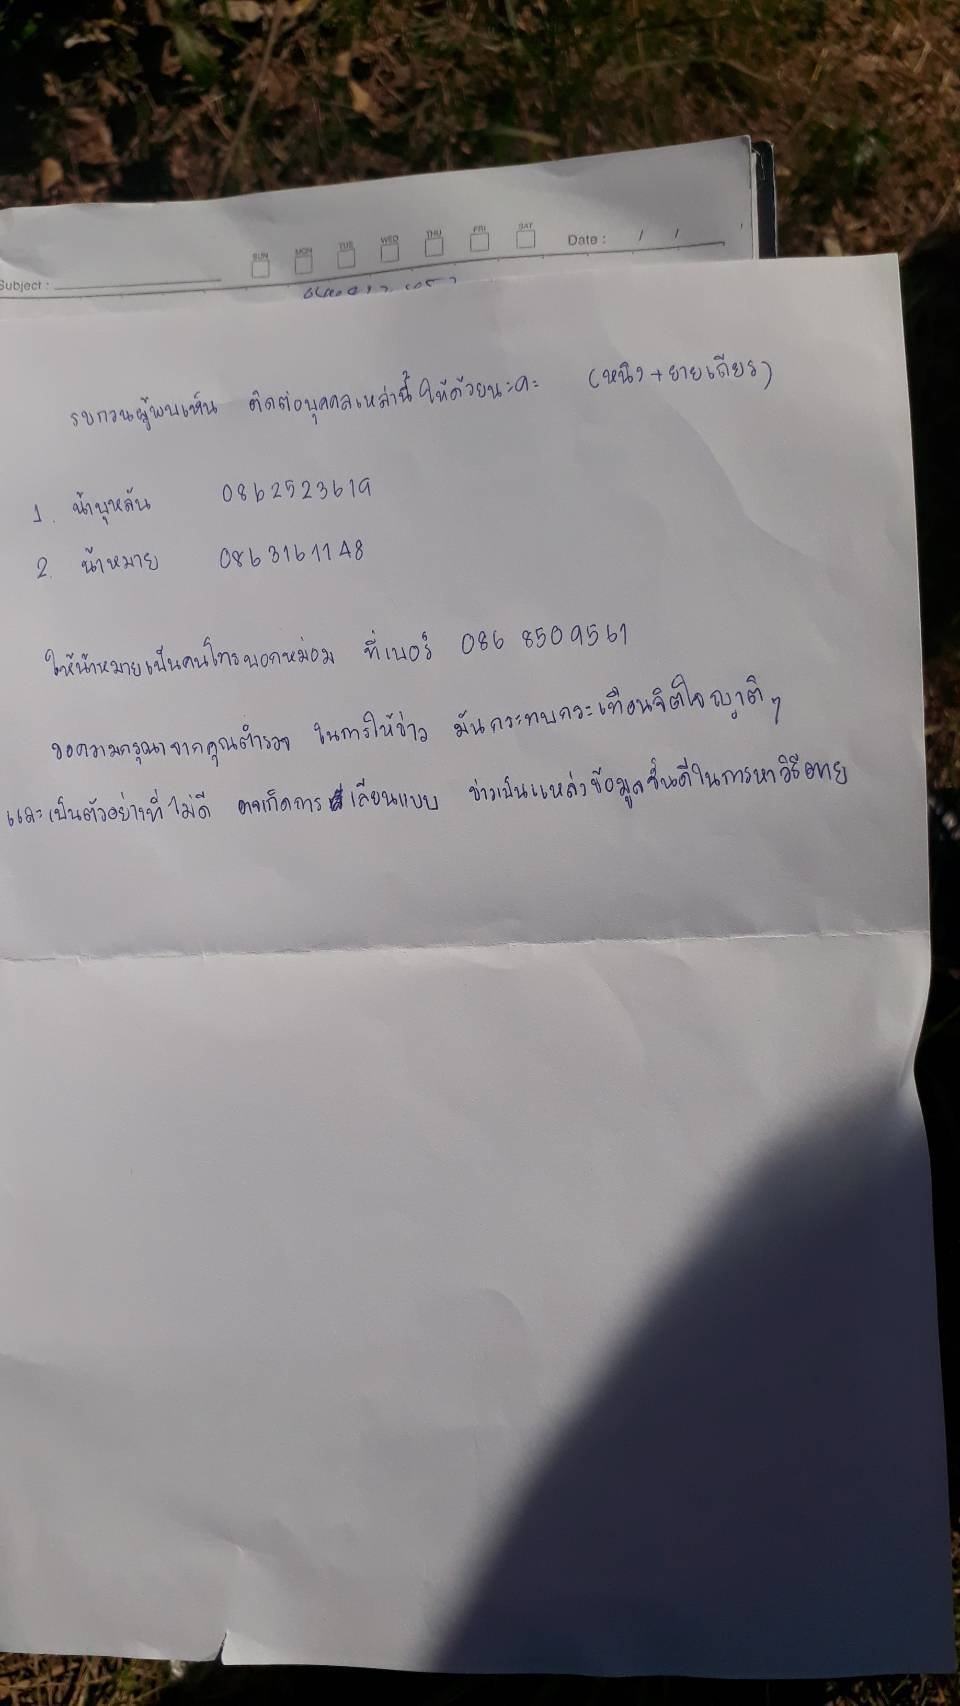 SUN MON TUE WED THU FRI SAT
Subject : Date : / /
รบกวนผู้พบเห็น ติดต่อบุคคลเหล่านี้ให้ด้วยนะคะ (หนิง+ยายเถียร)
1. น้าบุหลัน 0862523619
2. น้าหมาย 0863161148
ให้น้าหมายเป็นคนโทรบอกหม่อม ที่เบอร์ 086 8509561
ขอความกรุณาจากคุณตำรวจ ในการให้ข่าว มันกระทบกระเทือนจิตใจญาติๆ
และเป็นตัวอย่างที่ไม่ดี อาจเกิดการเลียนแบบ ข่าวเป็นแหล่งข้อมูลชั้นดีในการหาวิธีตาย